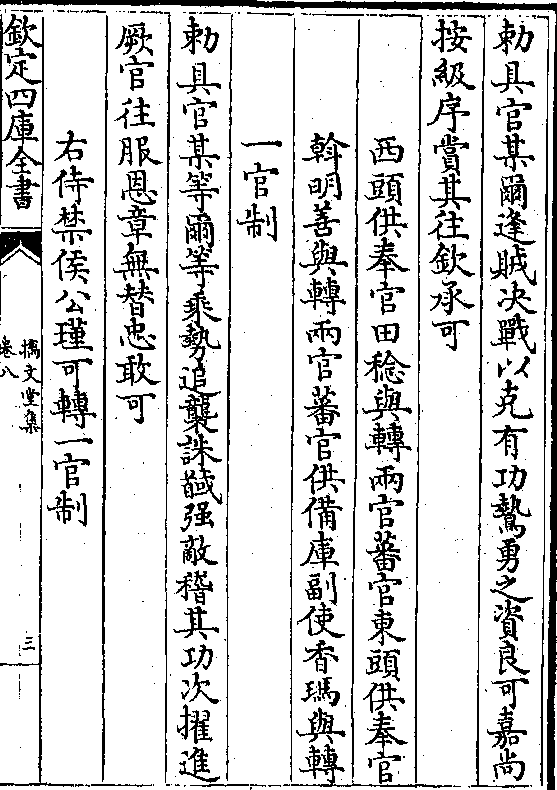 勅具官某爾逢賊决戰以克有功驁勇之資良可嘉尚
按級序賞其往欽承可
西頭供奉官田稔與轉兩官蕃官東頭供奉官
斡明善與轉兩官蕃官供備庫副使香瑪與轉
一官制
勅具官某等爾等乘勢追襲誅馘强敵稽其功次擢進
厥官往服恩章無替忠敢可
右侍禁侯公瑾可轉一官制
欽定四庫全書
摛文堂集
卷八
三